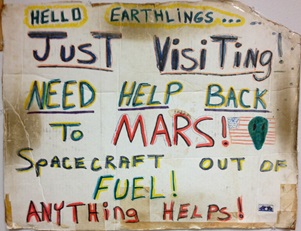 HELLO EARTHLINGS....
JUST VISITING!
NEED HELP BACK
TO MARS!
SPACECRAFT OUT OF
FUEL!
ANYTHING HELPS!